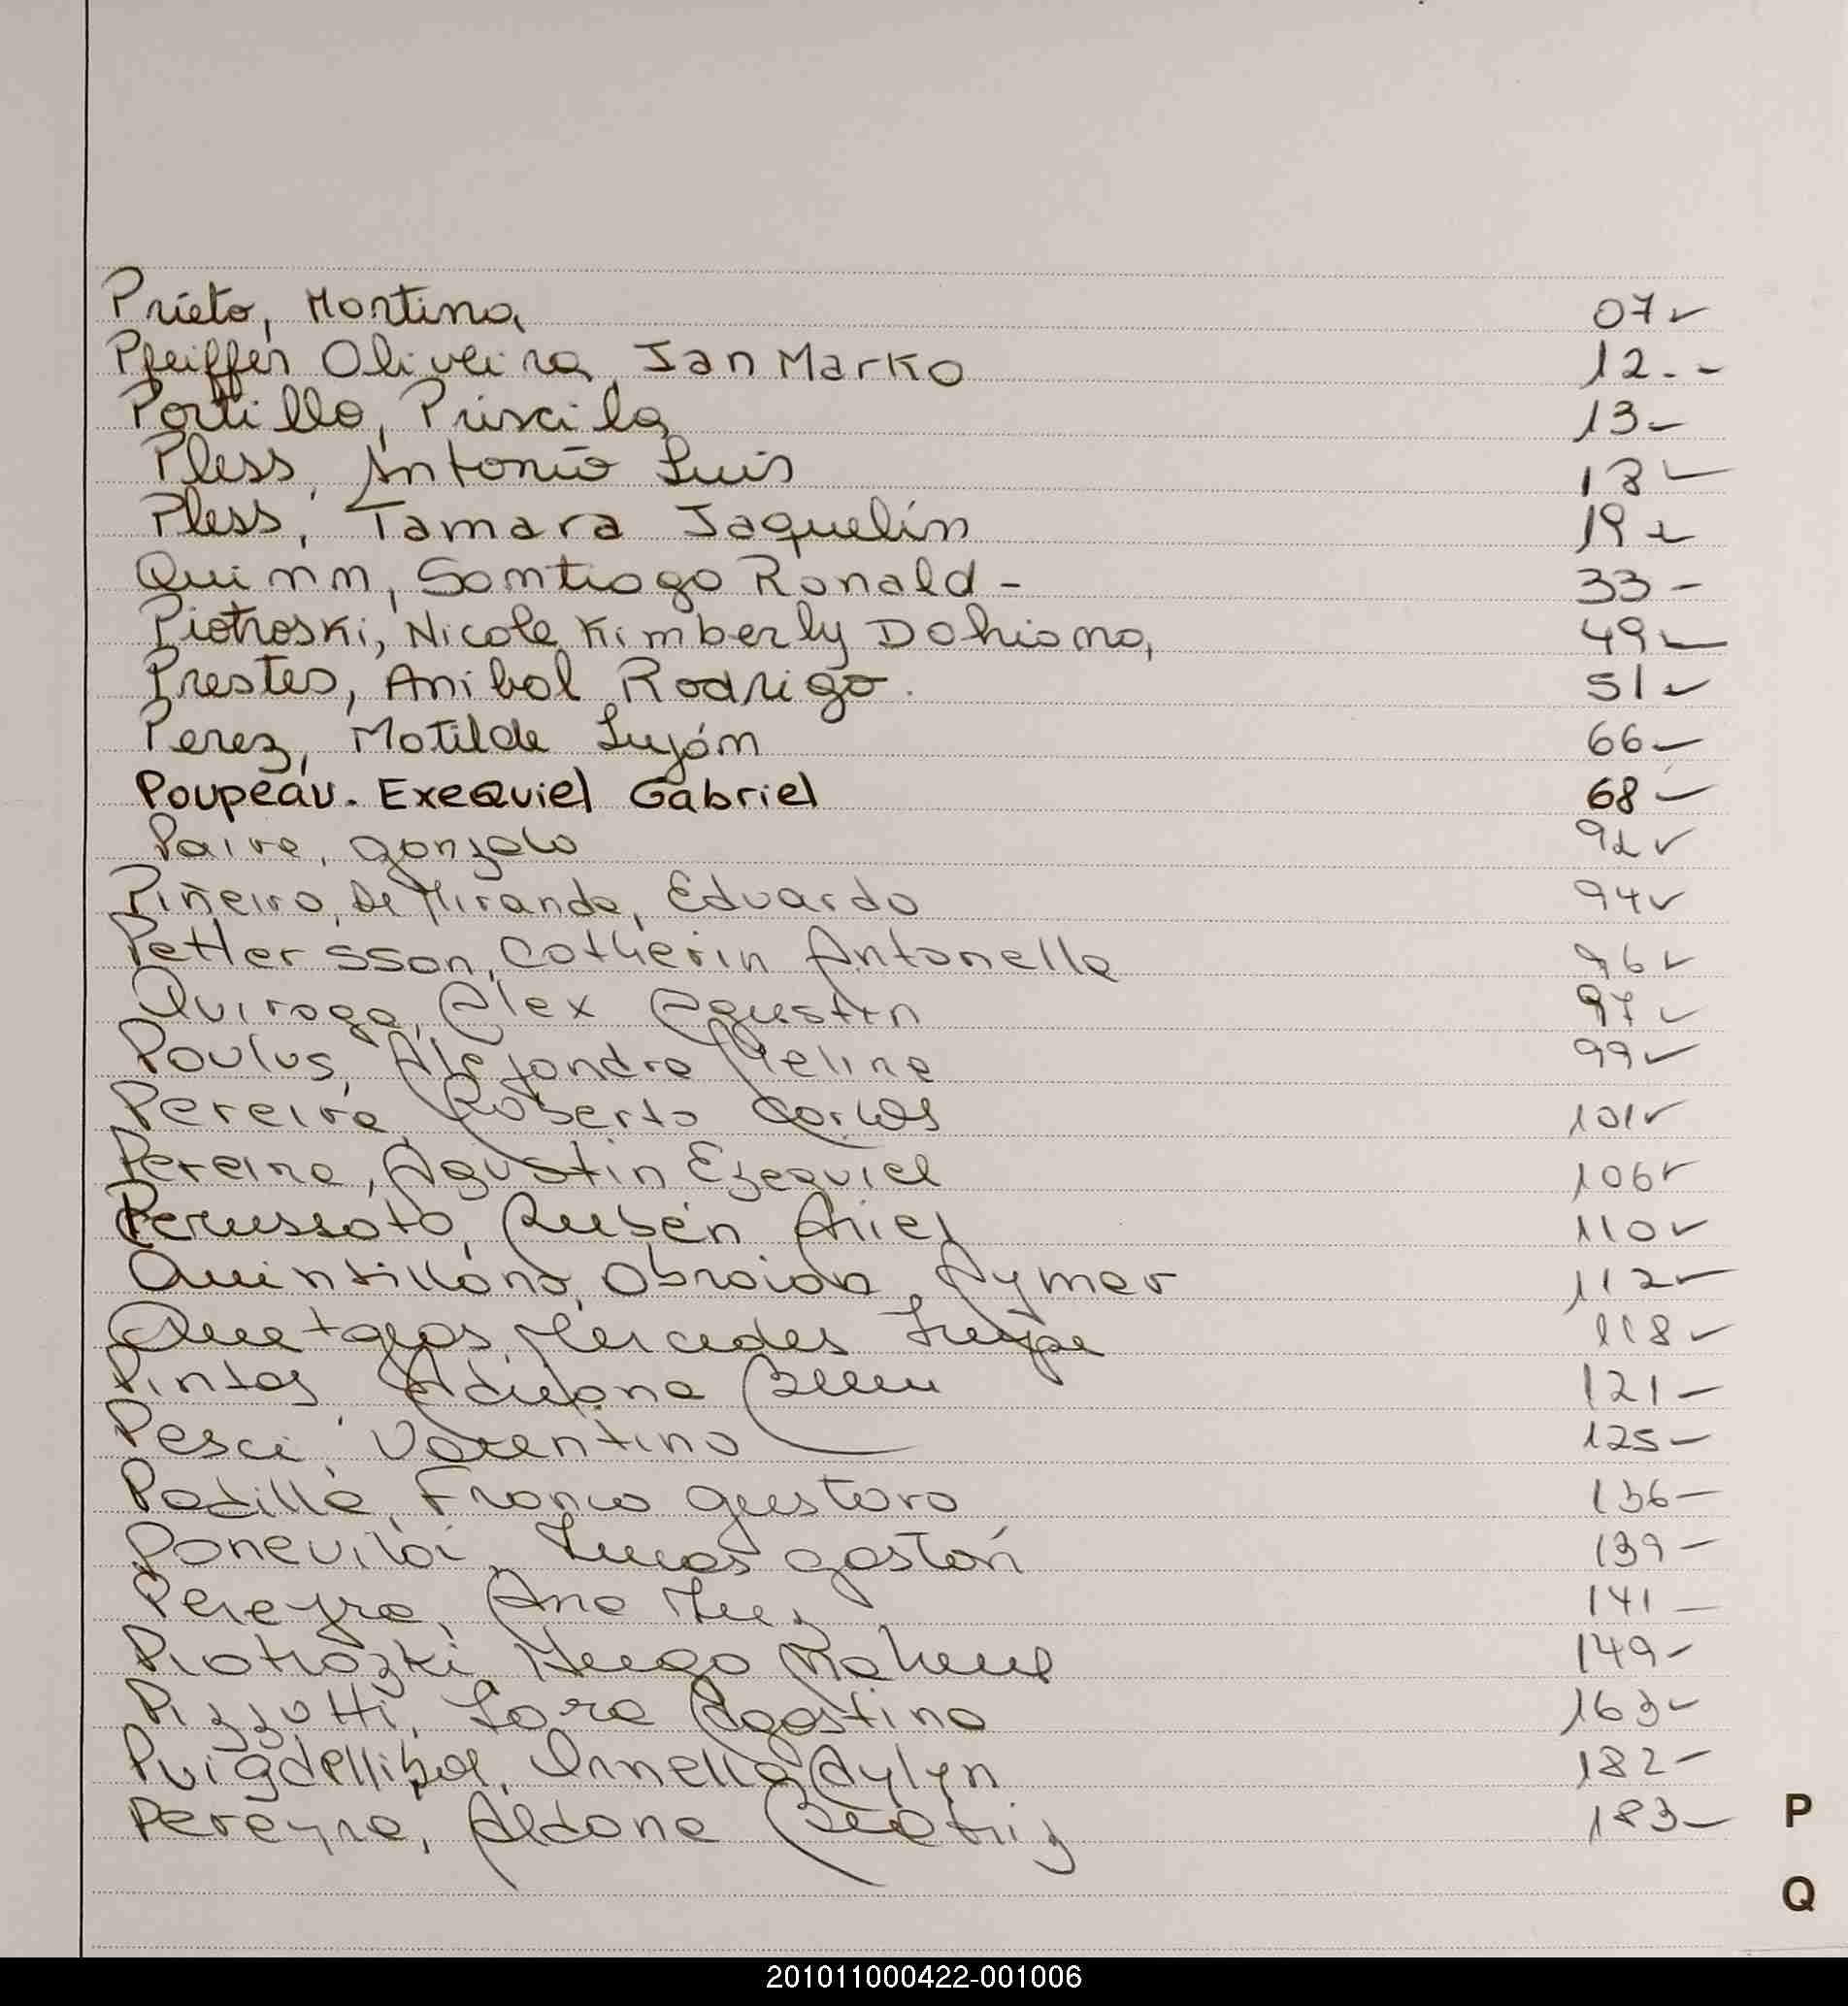 Prieto, Martina 07
Pfeiffer Oliveira, Jan Marko 12
Portillo, Priscila 13
Pless, Antonio Luis 18
Pless, Tamara Jaquelín 19
Quinn, Santiago Ronald - 33
Piotroski, Nicole Kimberly Dahiana, 49
Prestes, Anibal Rodrigo. 51
Perez, Matilde Luján 66
Poupeau. Exequiel Gabriel 68
Paiva, Gonzalo 92
Piñeiro, De Miranda, Eduardo 94
Pettersson, Catherin Antonella 96
Quiroga, Alex Agustin 97
Poulus, Alejandra Melina 99
Pereira, Roberto Carlos 101
Pereira, Agustin Ezequiel 106
Perussato, Rubén Ariel 110
Quintillána, Obraida Aymer 112
Quetglas, Mercedes 118
Pintos, Adriana Belen 121
Pesce, Valentino 125
Padilla, Franco Gustavo 136
Lucas Gastón 139
Pereyra, Ana 141
Piotrozki Hugo 149
Pizzutti, Lara Agostina 163
Puigdellibol, Ornella Aylyn 182
Pereyra, Aldana Beatriz 183
P
Q
201011000422-001006